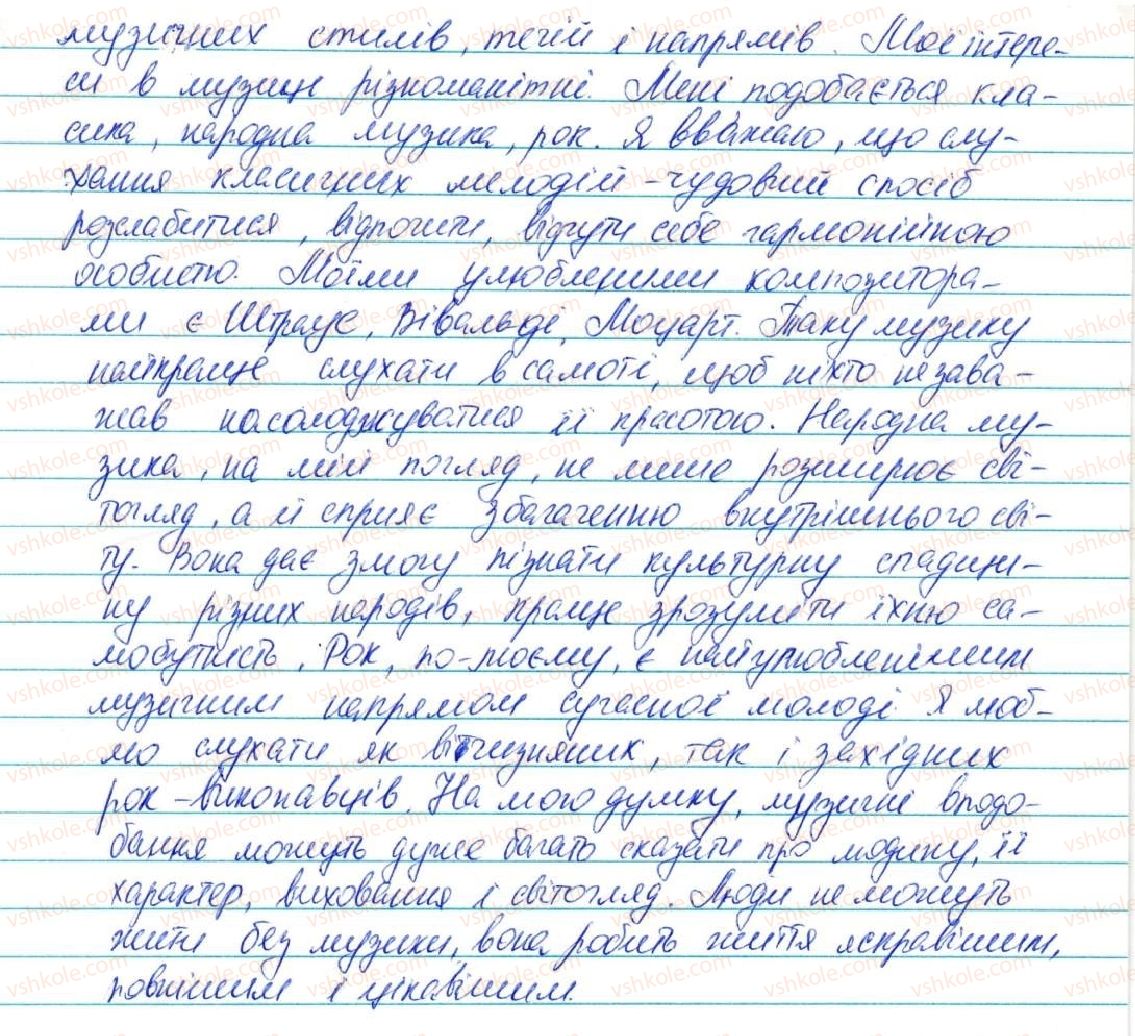 музичних стилів, течій і напрямів. Мої інтере-
си в музиці різноманітні. Мені подобається кла-
сика, народна музика, рок. Я вважаю, що слу-
хання класичних мелодій - чудовий спосіб
розслабитися, відпочити, відчути себе гармонійною
особистю. Моїми улюбленими композитора-
ми є Штраус, Вівальді, Моцарт. Таку музику
найкраще слухати в самоті, щоб ніхто не зава-
жав насолоджуватися її красотою. Народна му-
зика, на мій погляд, не лише розширює сві-
тогляд, а й сприяє збагаченню внутрішнього сві-
ту. Вона дає змогу пізнати культурну спадщи-
ну різних народів, краще зрозуміти їхню са-
мобутність. Рок, по-моєму, є найулюбленішим
музичним напрямом сучасної молоді. Я люб-
лю слухати як вітчизняних, так і західних
рок-виконавців. На мою думку, музичні вподо-
бання можуть дуже багато сказати про людину, її
характер, виховання і світогляд. Люди не можуть
жити без музики, вона робить життя яскравішим,
повнішим і цікавішим.
vshkole.com